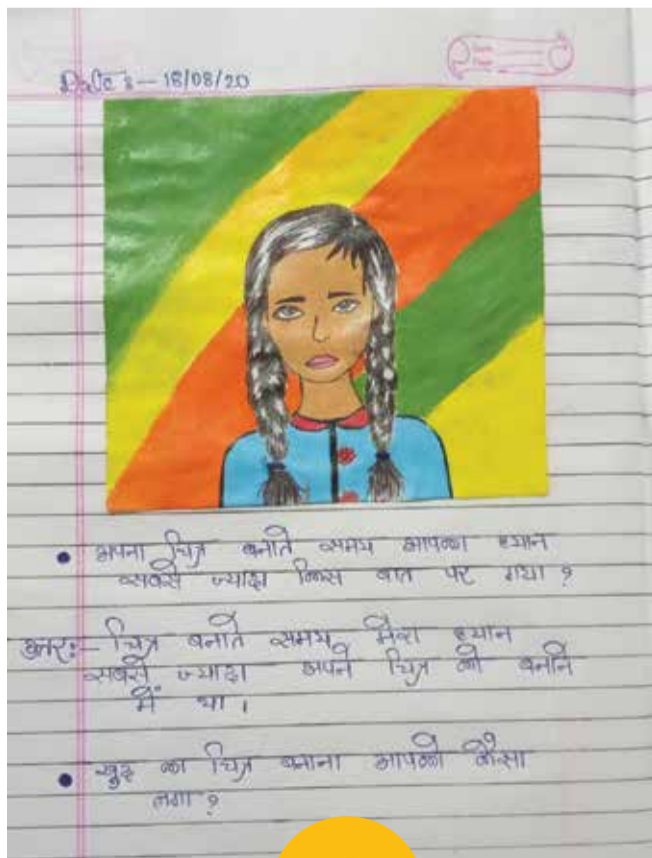 Date :- 18/08/20
• अपना चित्र बनाते समय आपका ध्यान
सबसे ज्यादा किस बात पर गया ?
उत्तर:- चित्र बनाते समय मेरा ध्यान
सबसे ज्यादा अपने चित्र को बनाने
में था ।
• खुद का चित्र बनाना आपको कैसा
लगा ?